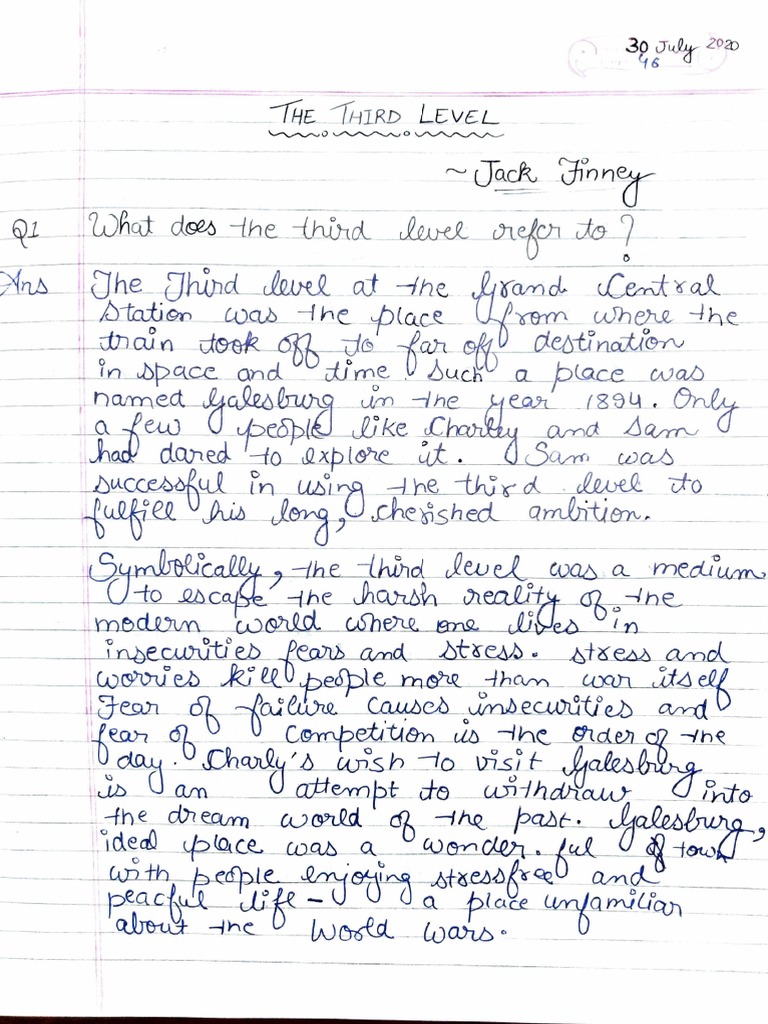 30 July 2020
46
THE THIRD LEVEL
~ Jack Finney
Q1 What does the third level refer to?
Ans The Third level at the Grand Central
Station was the place from where the
train took off to far off destination
in space and time. Such a place was
named Galesburg in the year 1894. Only
a few people like Charley and Sam
had dared to explore it. Sam was
successful in using the third level to
fulfill his long, cherished ambition.
Symbolically, the third level was a medium
to escape the harsh reality of the
modern world where one lives in
insecurities fears and stress. stress and
worries kill people more than war itself
Fear of failure causes insecurities and
fear of competition is the order of the
day. Charly's wish to visit Galesburg
is an attempt to withdraw into
the dream world of the past. Galesburg,
ideal place was a wonder.ful town
with people enjoying stressfree and
peacful life - a place unfamiliar
about the World wars.